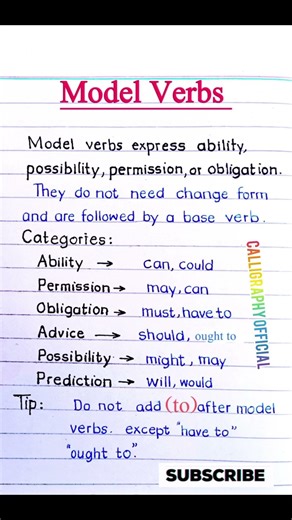 Model Verbs
Model verbs express ability,
possibility, permission, or obligation.
They do not need change form
and are followed by a base verb.
Categories:
Ability → can, could
Permission → may, can
Obligation → must, have to
Advice → should, ought to
Possibility → might, may
Prediction → will, would
Tip: Do not add (to) after model
verbs. except "have to"
"ought to".
CALLIGRAPHY OFFICIAL
SUBSCRIBE